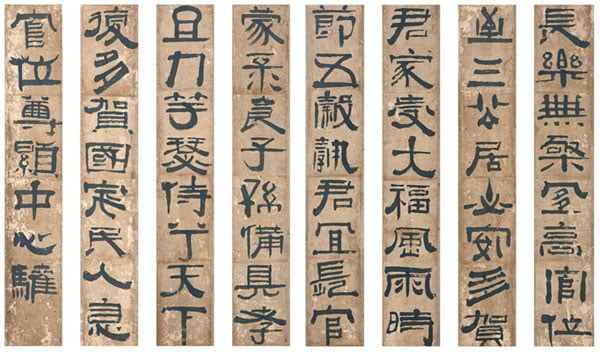 長樂無高官位
至三公居必安多賀
君家受大福風雨時
節五穀熟君宜長官
蒙子孫備具孝
且力等瑟侍于天下
復多賀國家民人息
官位尊顯中心驩